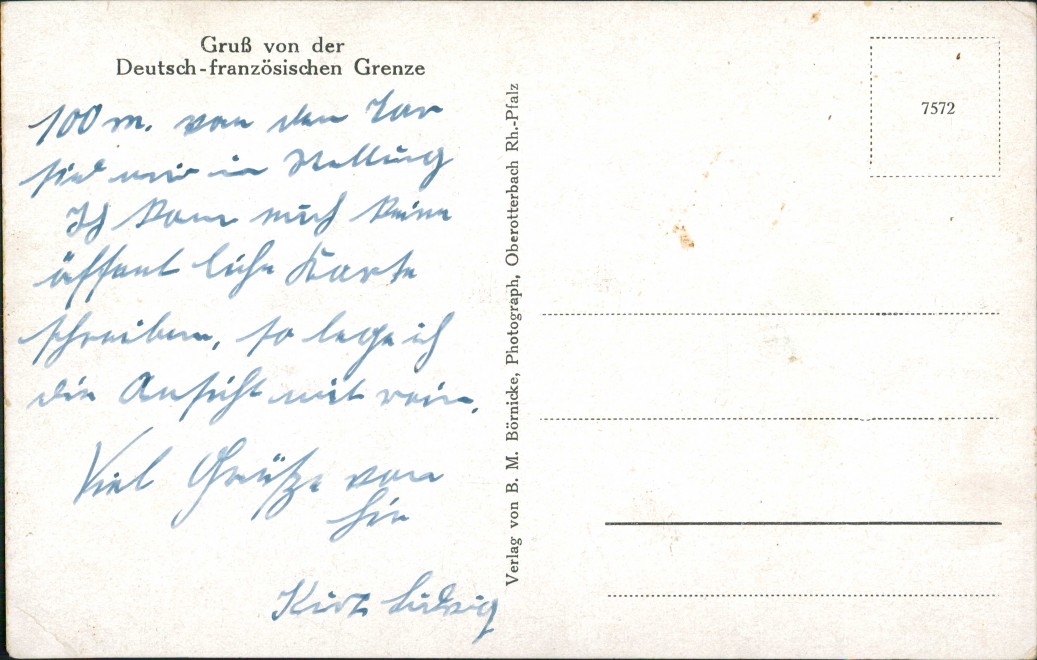 Gruß von der
Deutsch-französischen Grenze
100 m. von den
sind wir in Stellung
Ich kann auch keine
öffentliche Karte
schreiben, so lege ich
die Ansicht mit rein.
Viel Grüße von
hier
Kurt Ludwig
Verlag von B. M. Börnicke, Photograph, Oberotterbach Rh.-Pfalz
7572